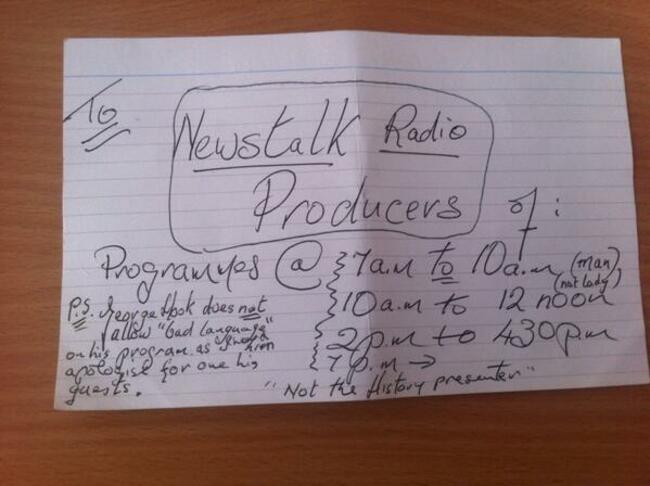 To
Newstalk Radio
Producers of :
Programmes @ 7a.m to 10a.m (man)
(not lady)
10a.m to 12 noon
2p.m to 430p.m
7p.m →
"Not the History presenter"
P.S. George Hook does not
allow "bad language"
on his program. as
apologise for one his
guests.